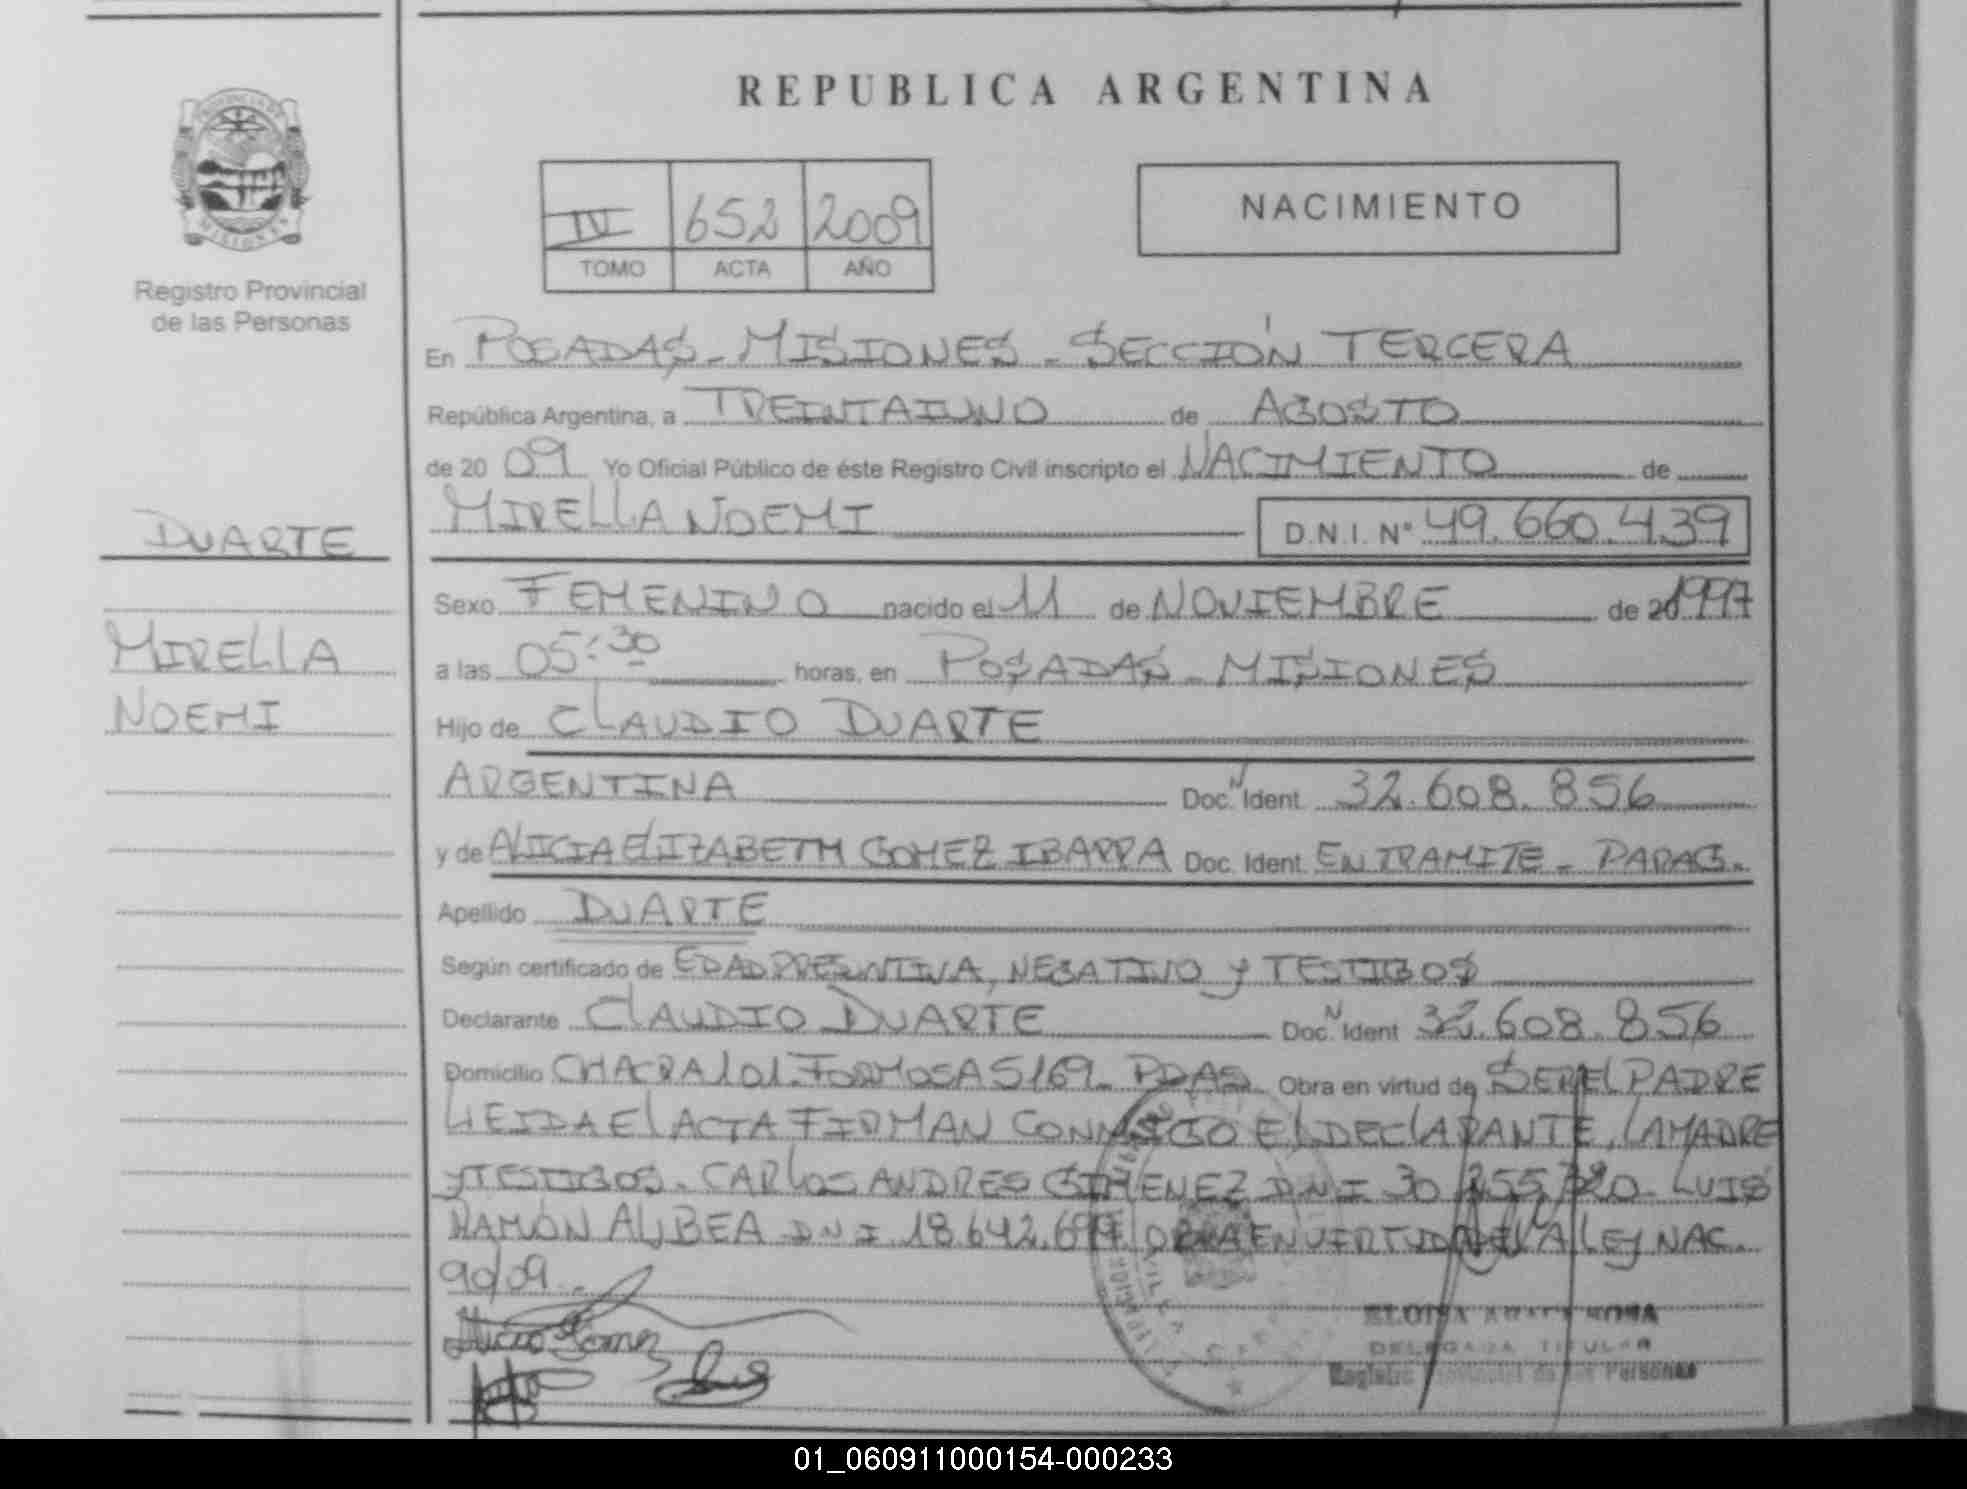 REPUBLICA ARGENTINA
PROVINCIA DE
MISIONES
Registro Provincial
de las Personas
IV 652 2009
TOMO ACTA AÑO
NACIMIENTO
En POSADAS - MISIONES - SECCIÓN TERCERA
República Argentina, a TREINTAIUNO de AGOSTO
de 20 09 Yo Oficial Público de éste Registro Civil inscripto el NACIMIENTO de
MIRELLA NOEMI D.N.I. Nº 49.660.439
DUARTE
MIRELLA
NOEMI
Sexo FEMENINO nacido el 11 de NOVIEMBRE de 1997
a las 05:30 horas, en POSADAS - MISIONES
Hijo de CLAUDIO DUARTE
ARGENTINA Doc. N Ident 32.608.856
y de ALICIA ELIZABETH GOMEZ IBARRA Doc. Ident. EN TRAMITE - PARAG.
Apellido DUARTE
Según certificado de EDAD PRESUNTIVA, NEGATIVO y TESTIGOS
Declarante CLAUDIO DUARTE Doc. N Ident 32.608.856
Domicilio CHACRA 101. FORMOSA 5169 - PDAS Obra en virtud de SER EL PADRE
LEIDA EL ACTA FIRMAN CONMIGO EL DECLARANTE, LA MADRE
y TESTIGOS. CARLOS ANDRES GIMENEZ DNI 30 LUIS
RAMÓN ALBEA DNI OBRA EN VIRTUD DE LA LEY NAC.
90/09.-
DELEGADA TITULAR
Registro Provincial de las Personas
01_060911000154-000233